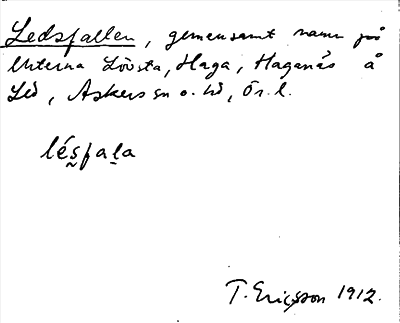 Ledsfallen, gemensamt namn på
Utterna Lövsta, Haga, Haganäs å
Led, Askers sn o. hd, Ör. l.
lésfala
T. Ericsson 1912.